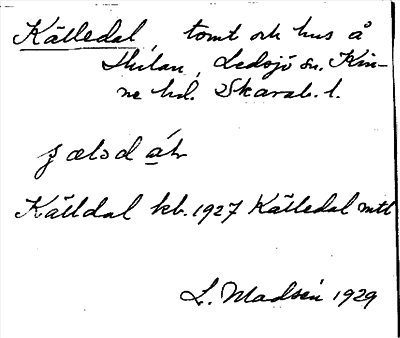 Källedal, tomt och hus å
Skilan, Ledsjö sn. Kin-
ne hd. Skarab. l.
Källdal kb. 1927 Källedal mtl
L. Madsén 1929